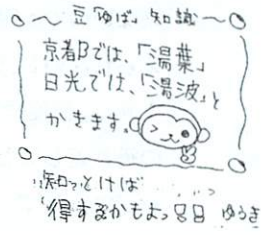 〜豆「ゆば」知識〜
京都では、「湯葉」
日光では、「湯波」と
かきます。
知っとけば
得するかもよっ ゆうき